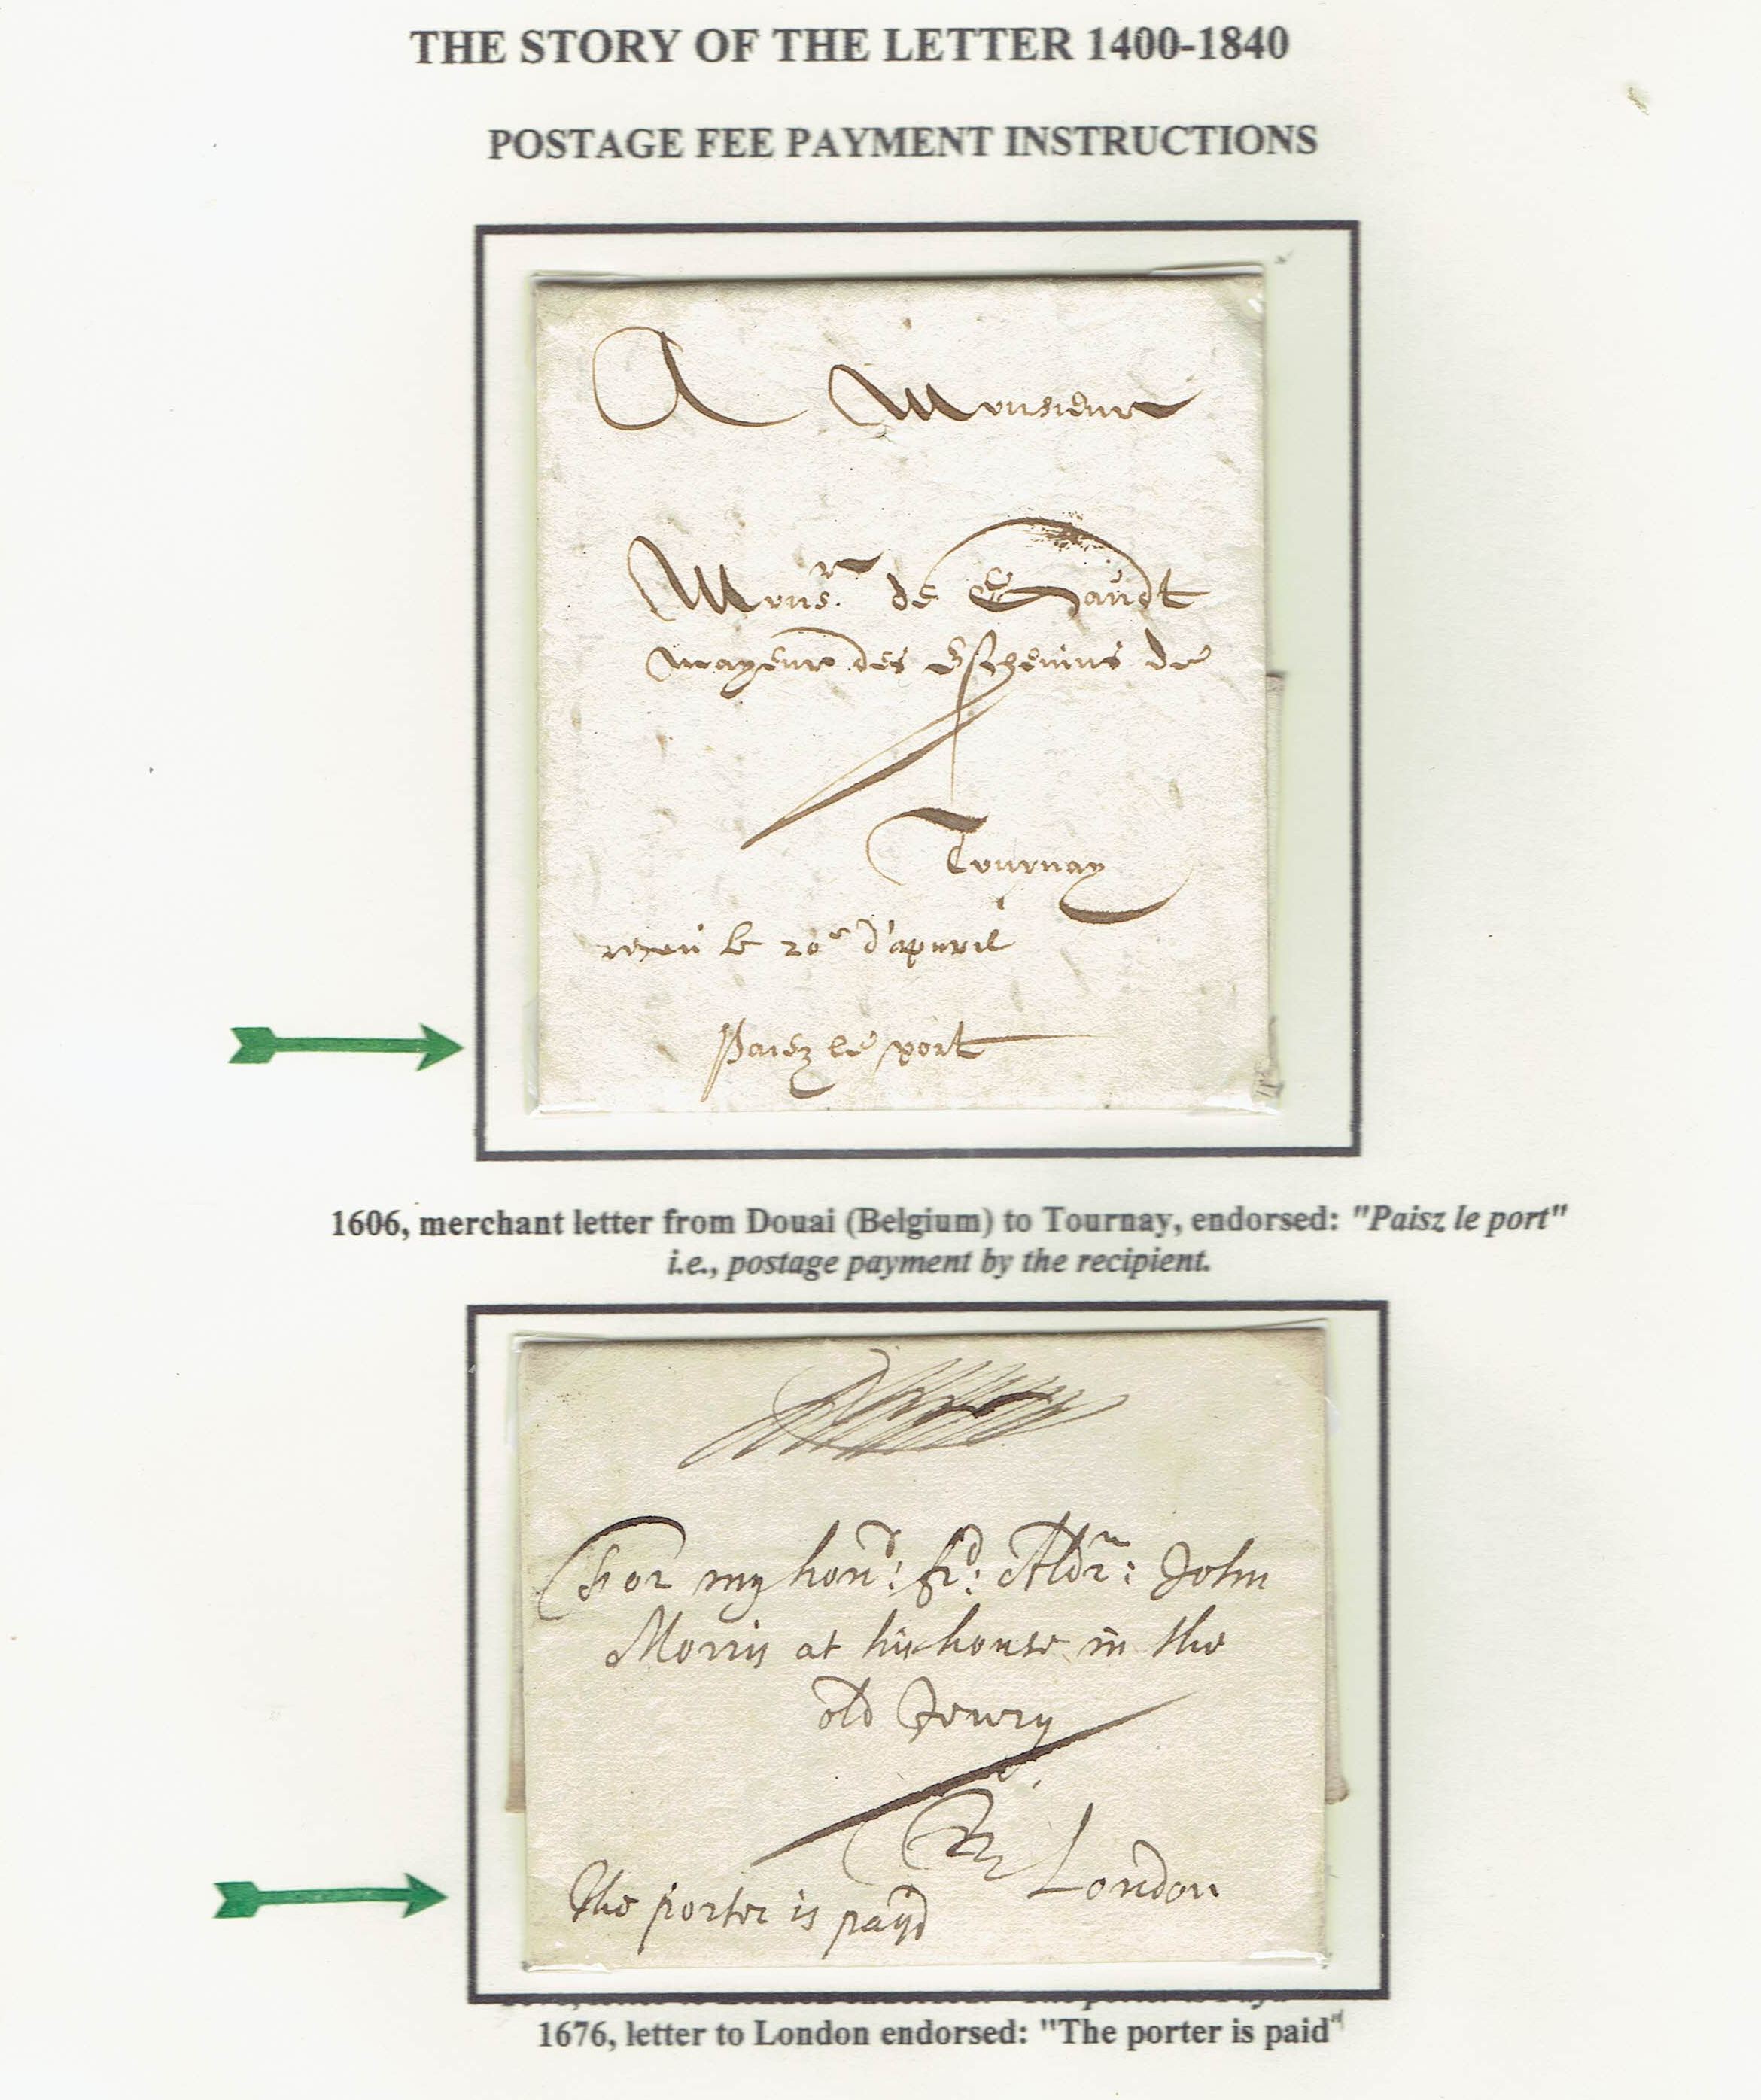 THE STORY OF THE LETTER 1400-1840
POSTAGE FEE PAYMENT INSTRUCTIONS
A Monsieur
Monsr. de
mayeur des Eschevins de
Tournay
receu le 20e d'apvril
Paiez le port
1606, merchant letter from Douai (Belgium) to Tournay, endorsed: "Paisz le port"
i.e., postage payment by the recipient.
For my hond: frd: Aldrm: John
Morris at his house in the
old Jewry
London
The porter is payd
1676, letter to London endorsed: "The porter is paid"